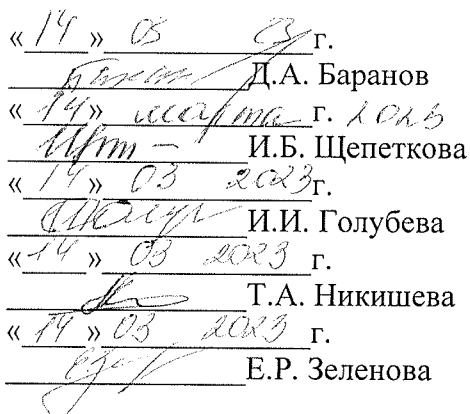 «14» 03 23 г.
Д.А. Баранов
«14» марта г. 2023
И.Б. Щепеткова
«14» 03 2023г.
И.И. Голубева
«14» 03 2023 г.
Т.А. Никишева
«14» 03 2023 г.
Е.Р. Зеленова